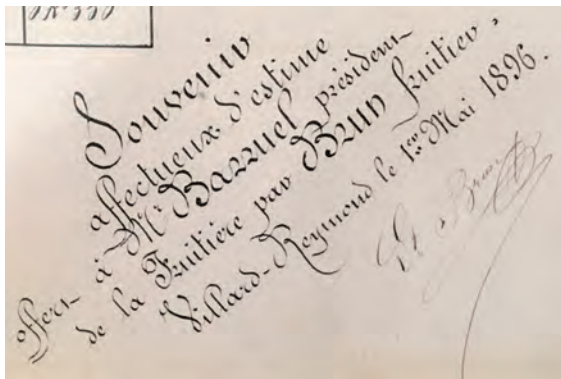 Souvenir
affectueux d'estime
offert à Mr Barruel président
de la Fruitière par Brun fruitier.
Villard-Reymond le 1er Mai 1896.
Brun